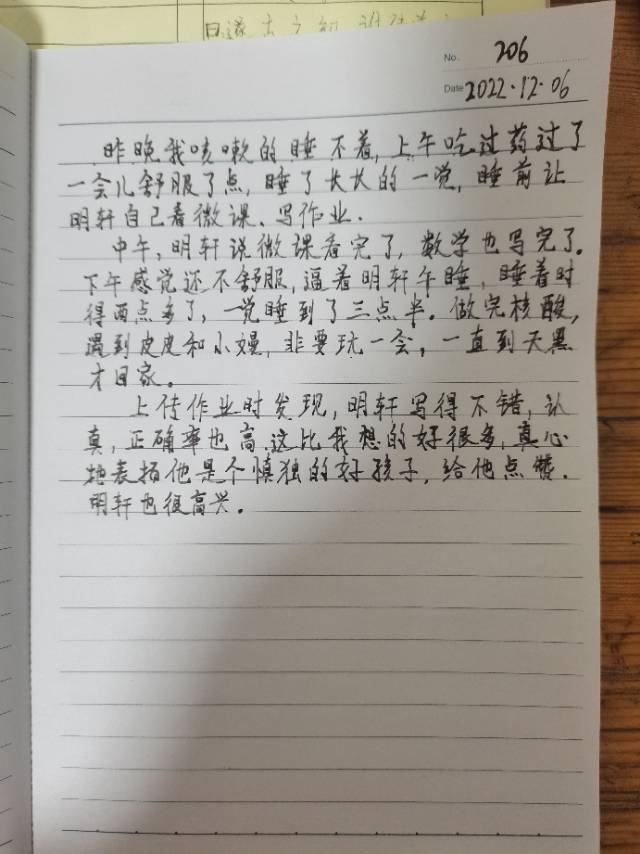 No. 206
Date 2022.12.06
昨晚我咳嗽的睡不着，上午吃过药过了
一会儿舒服了点，睡了长长的一觉，睡前让
明轩自己看微课、写作业.
中午，明轩说微课看完了，数学也写完了。
下午感觉还不舒服，逼着明轩午睡，睡着时
得两点多了，一觉睡到了三点半。做完核酸，
遇到皮皮和小嫚，非要玩一会，一直到天黑
才回家。
上传作业时发现，明轩写得不错，认
真，正确率也高，这比我想的好很多，真心
地表扬他是个慎独的好孩子，给他点赞.
明轩也很高兴。